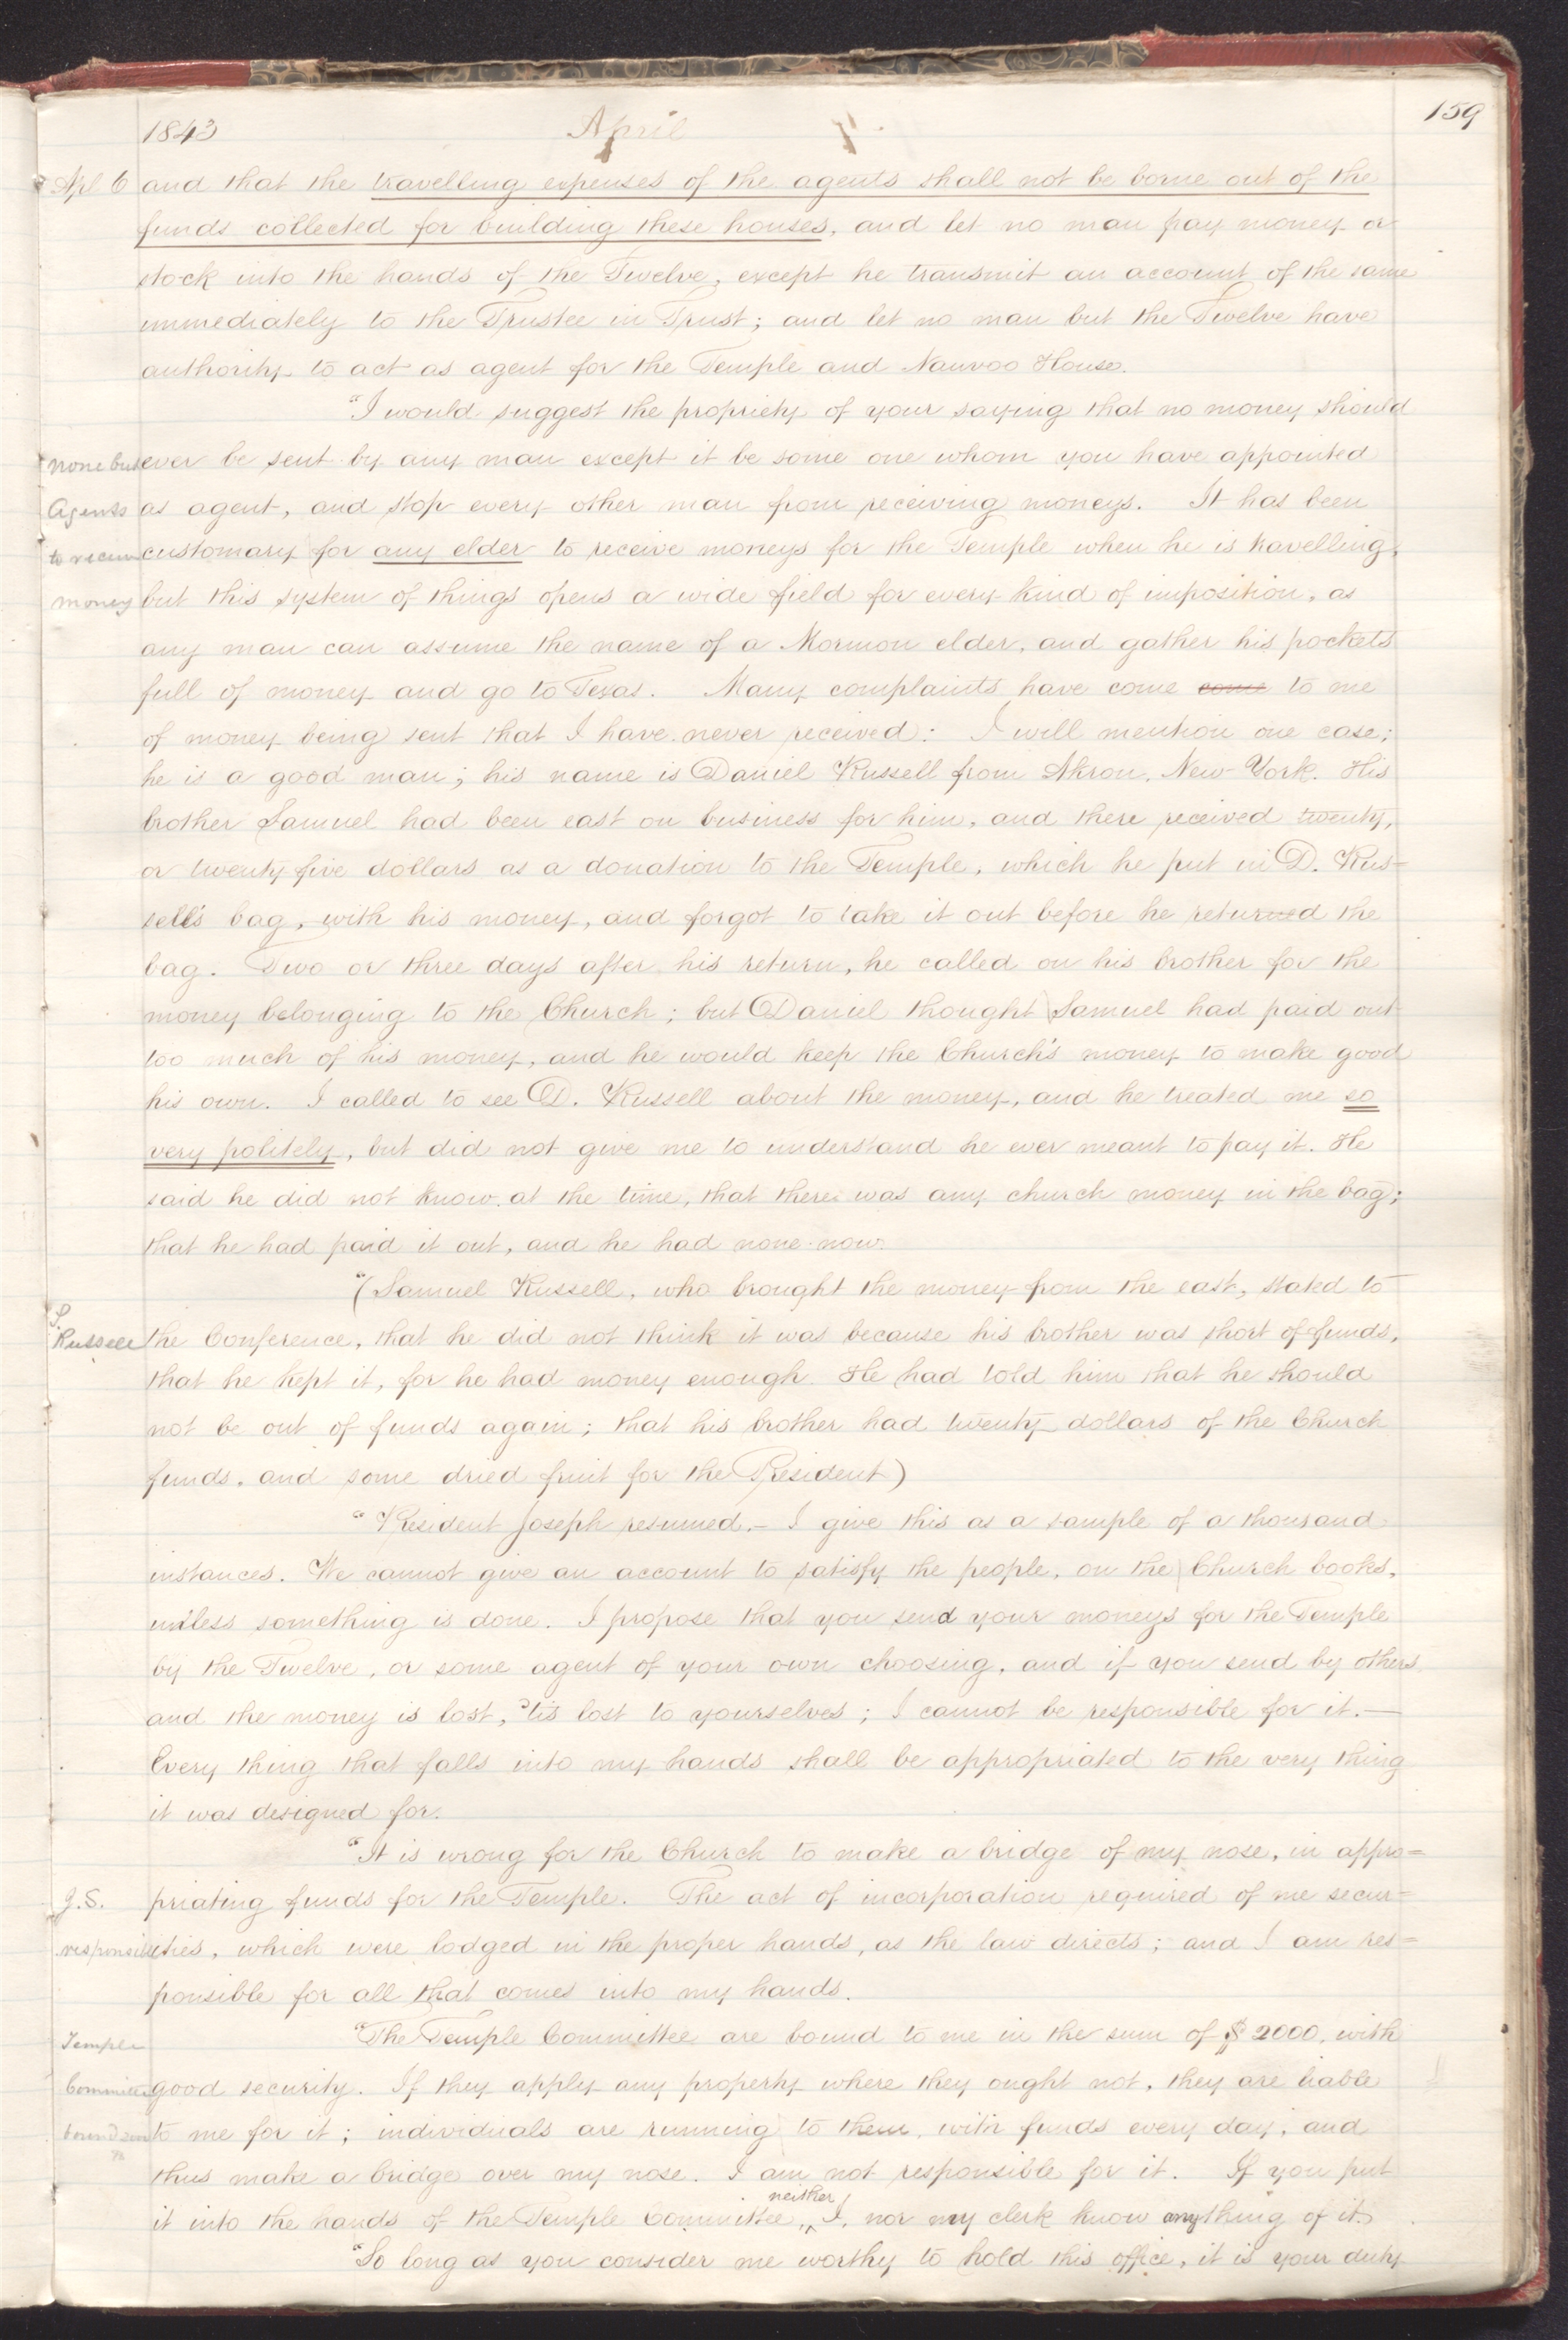 159
1843 April
Apl 6 and that the travelling expenses of the agents shall not be borne out of the
funds collected for building these houses, and let no man pay money or
stock into the hands of the Twelve, except he transmit an account of the same
immediately to the Trustee in Trust; and let no man but the Twelve have
authority to act as agent for the Temple and Nauvoo House.
"I would suggest the propriety of your saying that no money should
none but ever be sent by any man except it be some one whom you have appointed
Agents as agent, and stop every other man from receiving moneys. It has been
to receive customary for any elder to receive moneys for the Temple when he is travelling,
money but this system of things opens a wide field for every kind of imposition, as
any man can assume the name of a Mormon elder, and gather his pockets
full of money and go to Texas. Many complaints have come come to me
of money being sent that I have never received: I will mention one case;
he is a good man; his name is Daniel Russell from Akron, New-York. His
brother Samuel had been east on business for him, and there received twenty,
or twenty five dollars as a donation to the Temple, which he put in D. Rus=
sell's bag, with his money, and forgot to take it out before he returned the
bag. Two or three days after his return, he called on his brother for the
money belonging to the Church; but Daniel thought Samuel had paid out
too much of his money, and he would keep the Church's money to make good
his own. I called to see D. Russell about the money, and he treated me so
very politely, but did not give me to understand he ever meant to pay it. He
said he did not know at the time, that there was any church money in the bag;
that he had paid it out, and he had none now.
"(Samuel Russell, who brought the money from the east, stated to
S. Russell the Conference, that he did not think it was because his brother was short of funds,
that he kept it, for he had money enough. He had told him that he should
not be out of funds again; that his brother had twenty dollars of the Church
funds, and some dried fruit for the President)
"President Joseph resumed.– I give this as a sample of a thousand
instances. We cannot give an account to satisfy the people, on the Church books,
unless something is done. I propose that you send your moneys for the Temple
by the Twelve, or some agent of your own choosing, and if you send by others
and the money is lost, 'tis lost to yourselves; I cannot be responsible for it.—
Every thing that falls into my hands shall be appropriated to the very thing
it was designed for.
"It is wrong for the Church to make a bridge of my nose, in appro=
J.S. priating funds for the Temple. The act of incorporation required of me secur=
responsible ities, which were lodged in the proper hands, as the law directs; and I am res=
ponsible for all that comes into my hands.
Temple "The Temple Committee are bound to me in the sum of $2000, with
Committee good security. If they apply any property where they ought not, they are liable
to me for it; individuals are running to them, with funds every day, and
thus make a bridge over my nose. I am not responsible for it. If you put
it into the hands of the Temple Committee, neither I, nor my clerk know anything of it.
"So long as you consider me worthy to hold this office, it is your duty